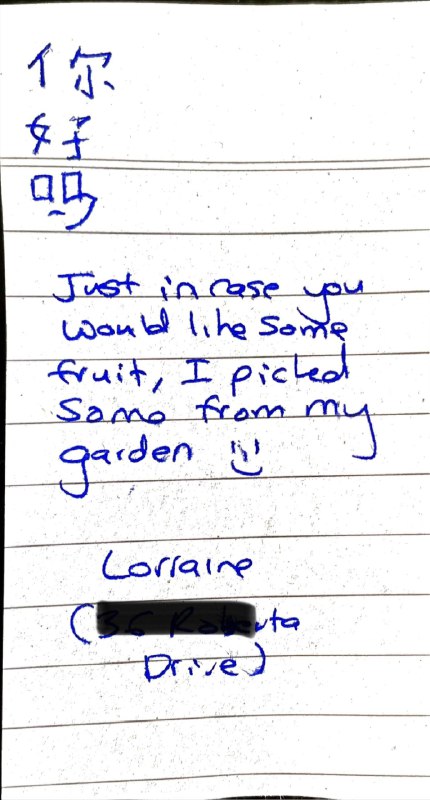 你
好
吗
Just in case you
would like some
fruit, I picked
some from my
garden
Lorraine
Drive)